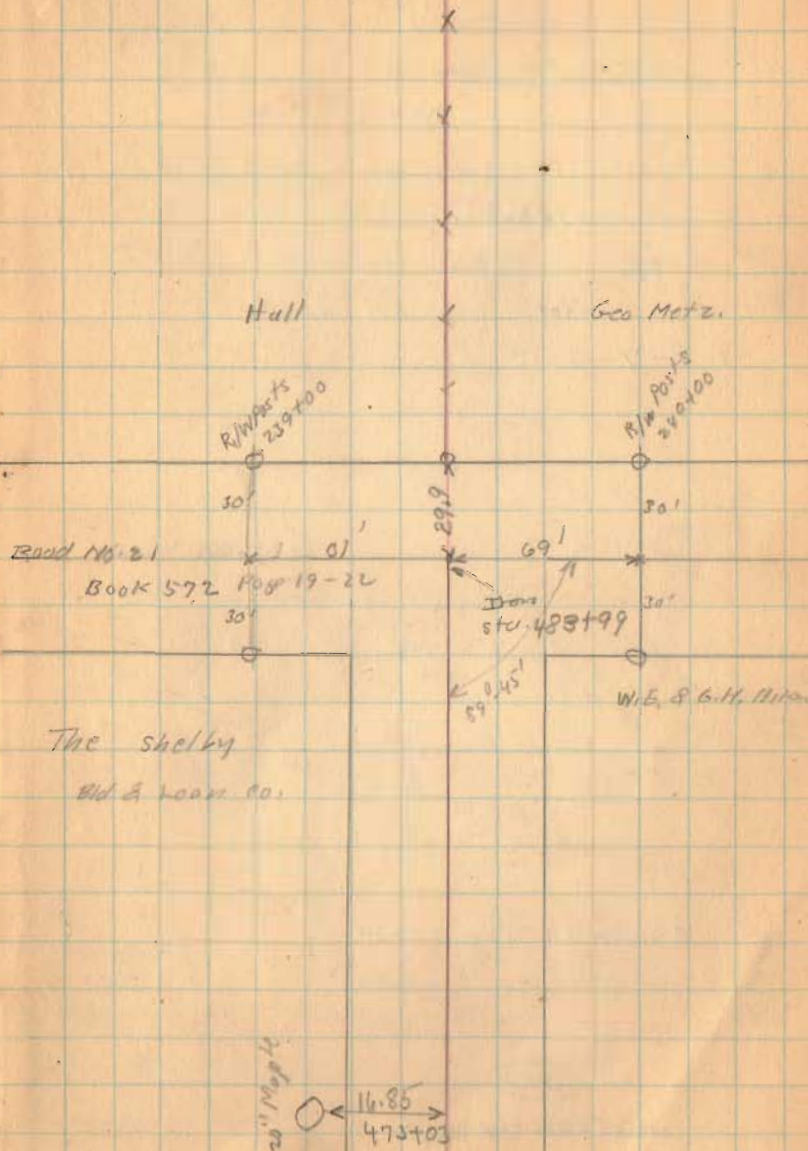 Hall
Geo Metz.
R/W Posts
239+00
R/W Posts
240+00
30'
29.9
30'
Road No. 21
Book 572 Page 19-22
69'
30'
Iron
sta. 483+99
30'
89° 45'
W.E. & G.H.
The Shelby
Bld & Loan Co.
20" Maple
16.85